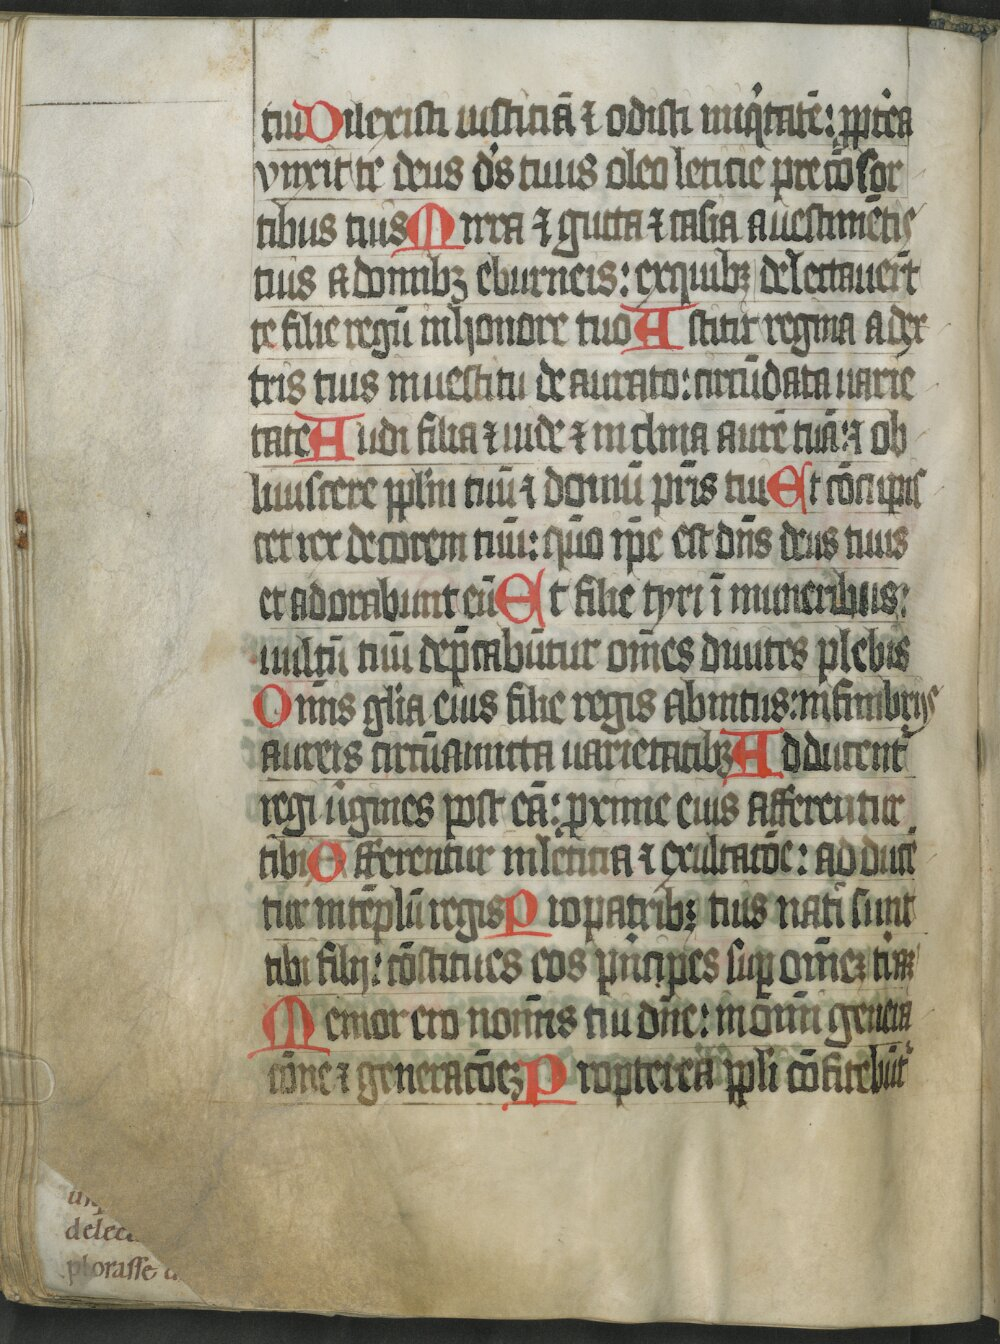 tui Dilexisti iusticiā ⁊ odisti iniq̇tatē: ꝓpt̾ea
vnxit te deus d̾s tuus oleo leticie pre cōsor
tibus tuis Mirra ⁊ gutta ⁊ casia a uestimētis
tuis a domibꝫ eburneis: ex quibꝫ delectauer̄t
te filie regū in honore tuo Astitit regina a dex
tris tuis in uestitu deaurato: circūdata uarie
tate Audi filia ⁊ uide ⁊ inclina aurē tuā: ⁊ ob
liuiscere ppl̄m tuū ⁊ domū pr̄is tui Et cōcupis
cet rex decorem tuū: qm̄o ip̄e est dn̄s deus tuus
et adorabunt eū Et filie tyri ī muneribus:
uultū tuū dep̄cabūtur om̄es diuites plebis
Om̄is gl̄ia eius filie regis ab intus: in fimbrijs
aureis circūamicta uarietatibꝫ Adducent᷑
regi ūgines post eā: ꝓxime eius afferentur
tibi Offerentur in leticia ⁊ exultacōe: adducē
tur in tēplū regis Pro patribꝫ tuis nati sunt
tibi filij: cōstitues eos prīcipes sup om̄eꝫ t̾raꝫ
Memor ero nom̄is tui dn̄e: in om̄i genera
cōne ⁊ generacōeꝫ Propterea ppl̄i cōfitebūt᷑
delec
plorasse